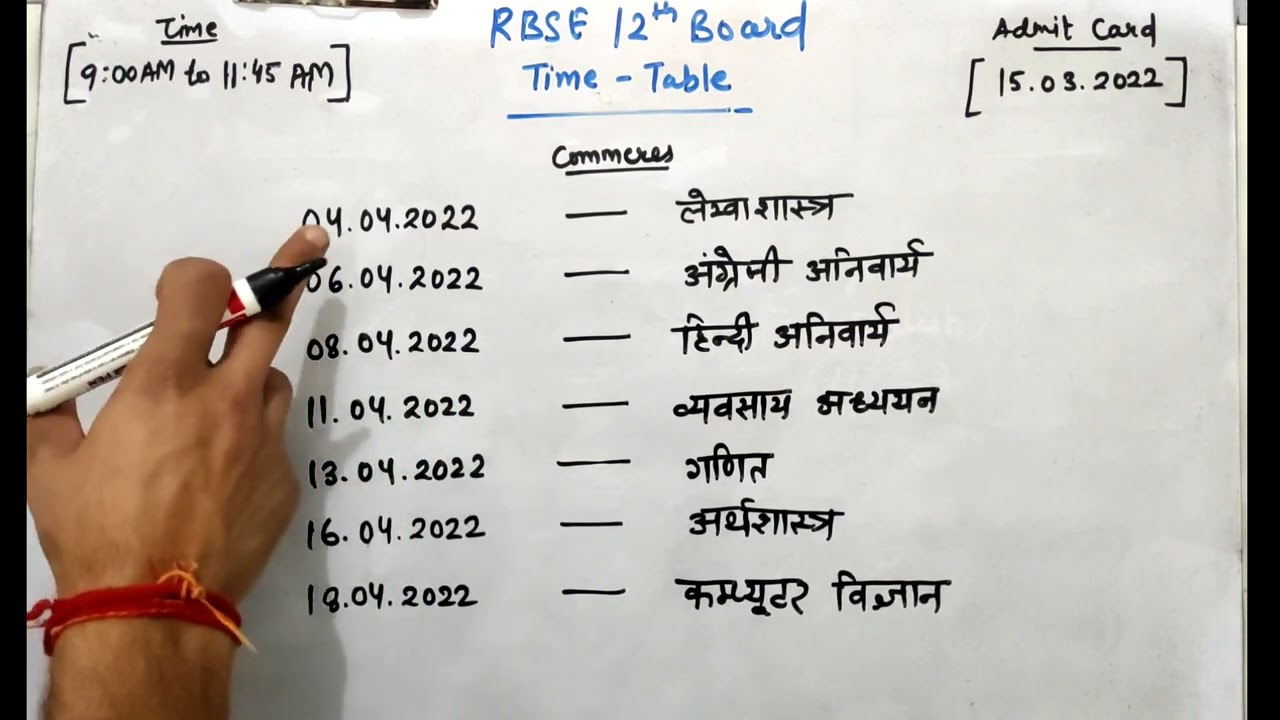 Time
[9:00AM to 11:45 AM]
RBSE 12th Board
Time - Table
Admit Card
[15.03.2022]
Commeres
04.04.2022 — लेखाशास्त्र
06.04.2022 — अंग्रेजी अनिवार्य
08.04.2022 — हिन्दी अनिवार्य
11.04.2022 — व्यवसाय अध्ययन
13.04.2022 — गणित
16.04.2022 — अर्थशास्त्र
18.04.2022 — कम्प्यूटर विज्ञान